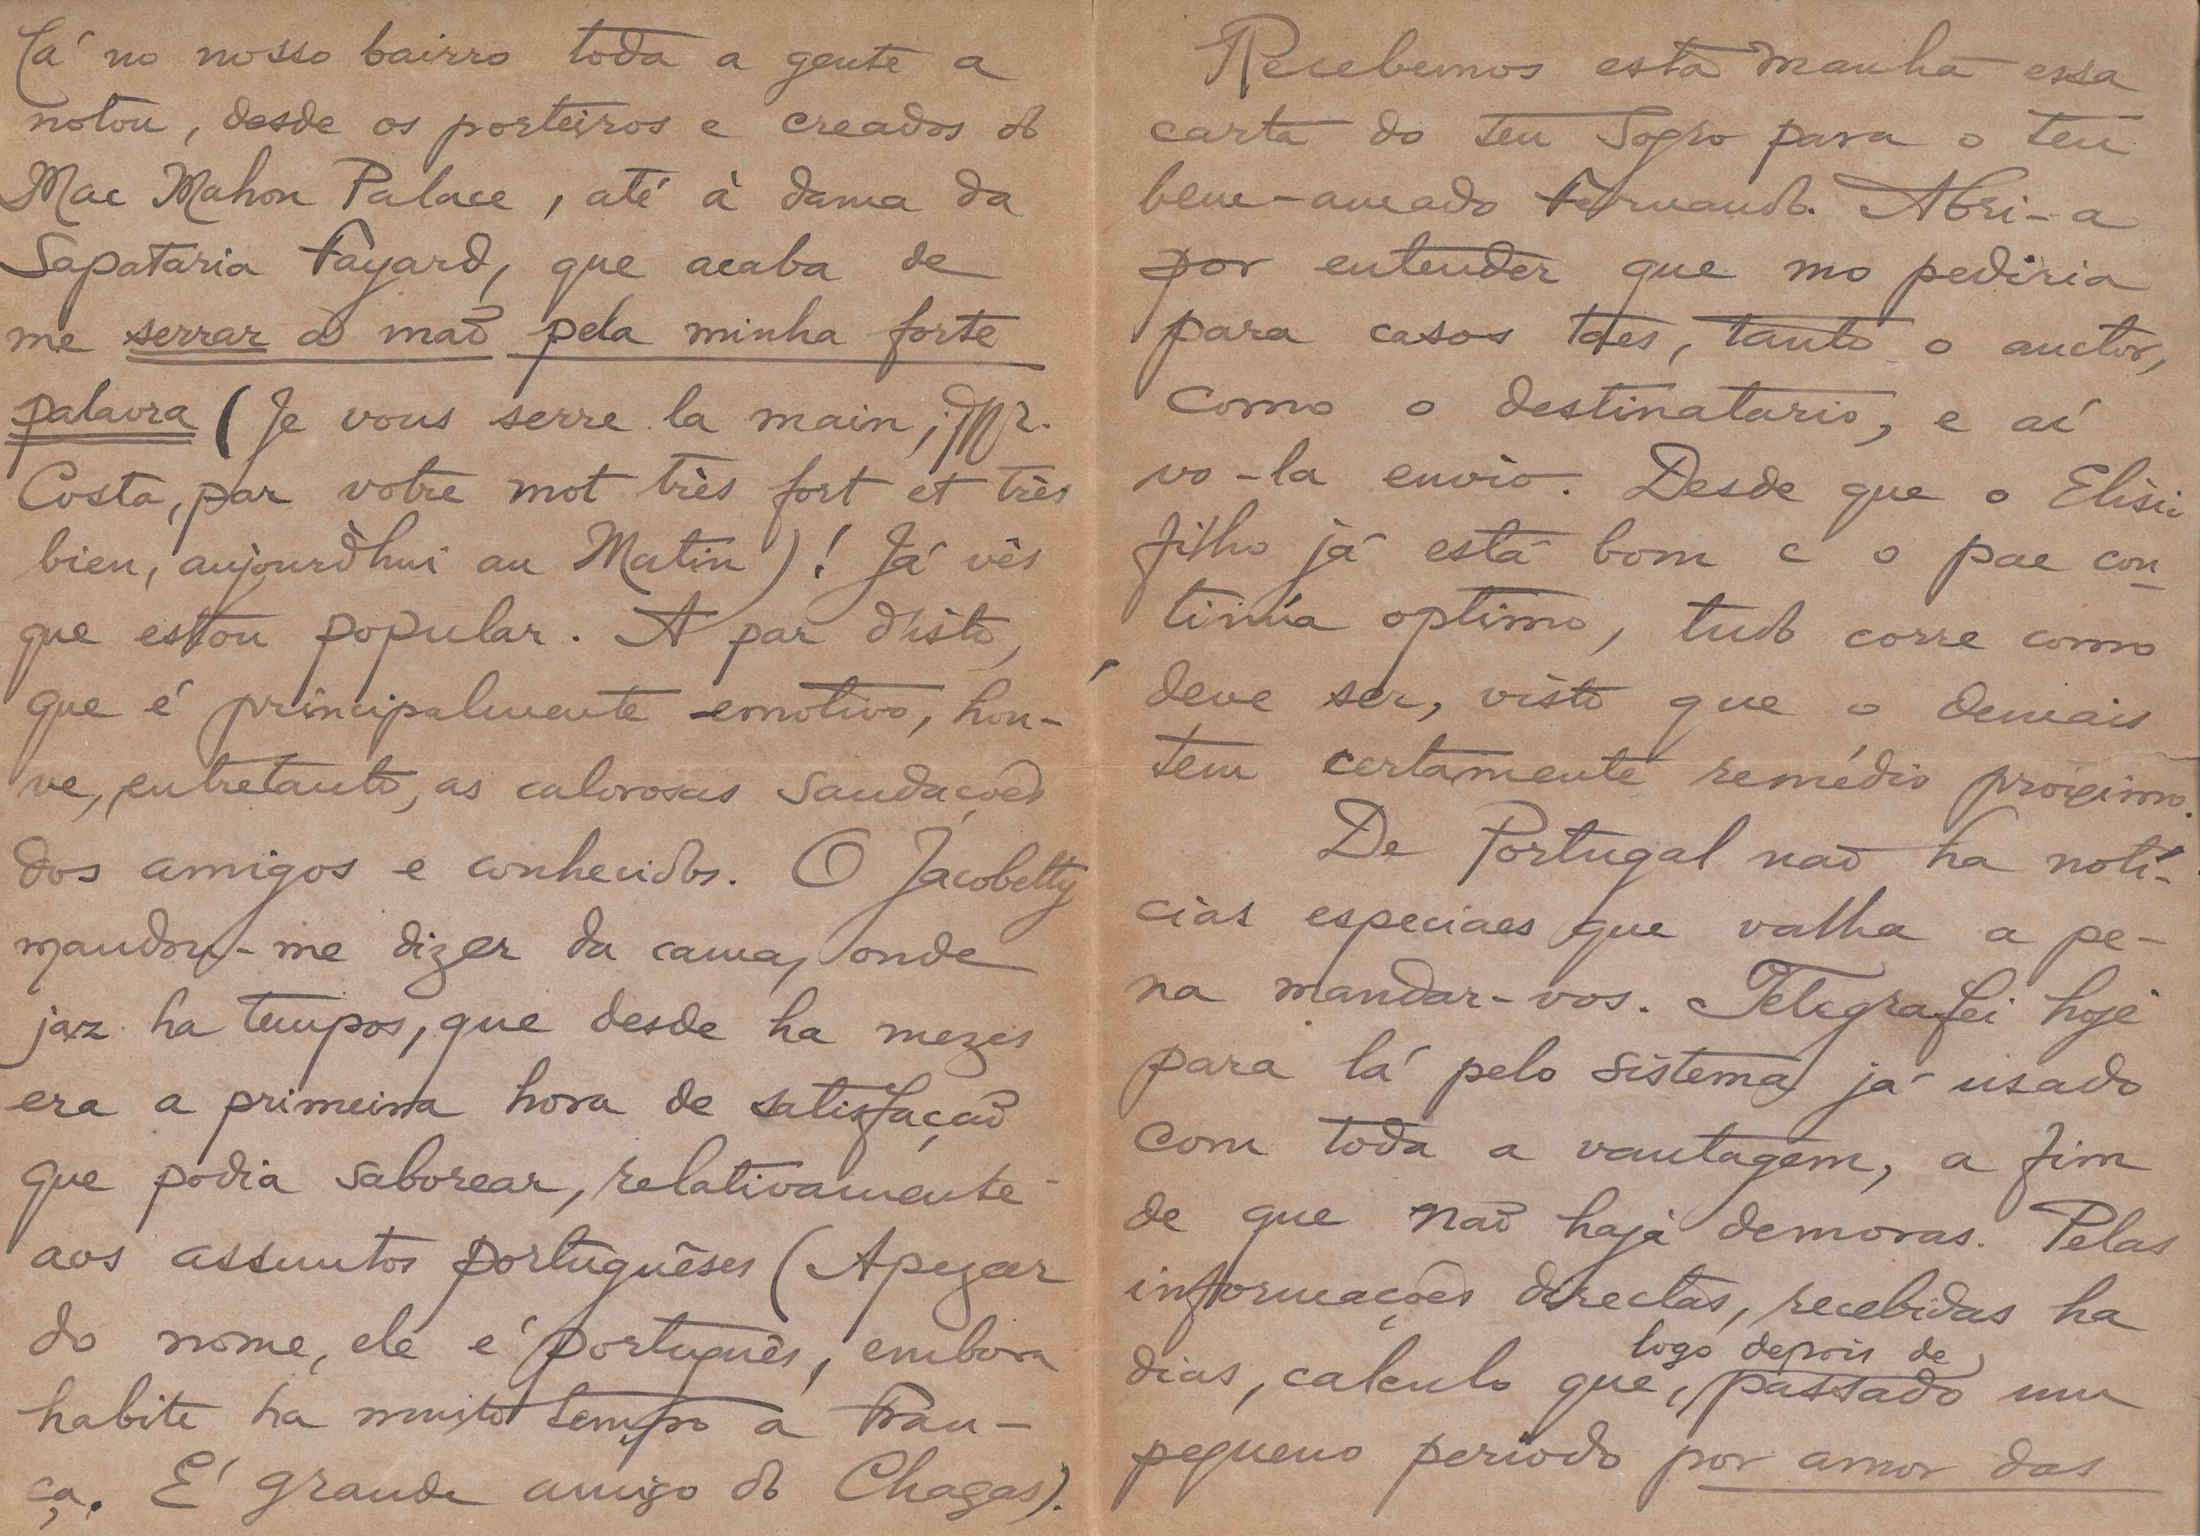 Cá no nosso bairro toda a gente a
notou, desde os porteiros e creados do
Mac Mahon Palace, até à dama da
Sapataria Fayard, que acaba de
me serrar a mão pela minha forte
palavra (Je vous serre la main, Mr.
Costa, par votre mot très fort et très
bien, aujourd'hui au Matin)! Já vês
que estou popular. A par disto,
que é principalmente emotivo, hou-
ve, entretanto, as calorosas saudações
dos amigos e conhecidos. O Jacobetty
mandou-me dizer da cama, onde
jaz ha tempos, que desde ha mezes
era a primeira hora de satisfação
que podia saborear, relativamente
aos assuntos portuguêses (Apezar
do nome, ele é português, embora
habite ha muito tempo a Fran-
ça. É grande amigo do Chagas).
Recebemos esta manhã essa
carta do teu Sogro para o teu
bem-amado Fernando. Abri-a
por entender que mo pediria
para casos taes, tanto o auctor,
como o destinatario, e aí
vo-la envio. Desde que o Elisio
filho já está bom e o pae con-
tinúa optimo, tudo corre como
deve ser, visto que o demais
tem certamente remédio proximo.
De Portugal não ha notí-
cias especiaes que valha a pe-
na mandar-vos. Telegrafei hoje
para lá pelo sistema já usado
com toda a vantagem, a fim
de que não haja demoras. Pelas
informações directas, recebidas ha
dias, calculo que, logo depois de passado um
pequeno periodo por amor das